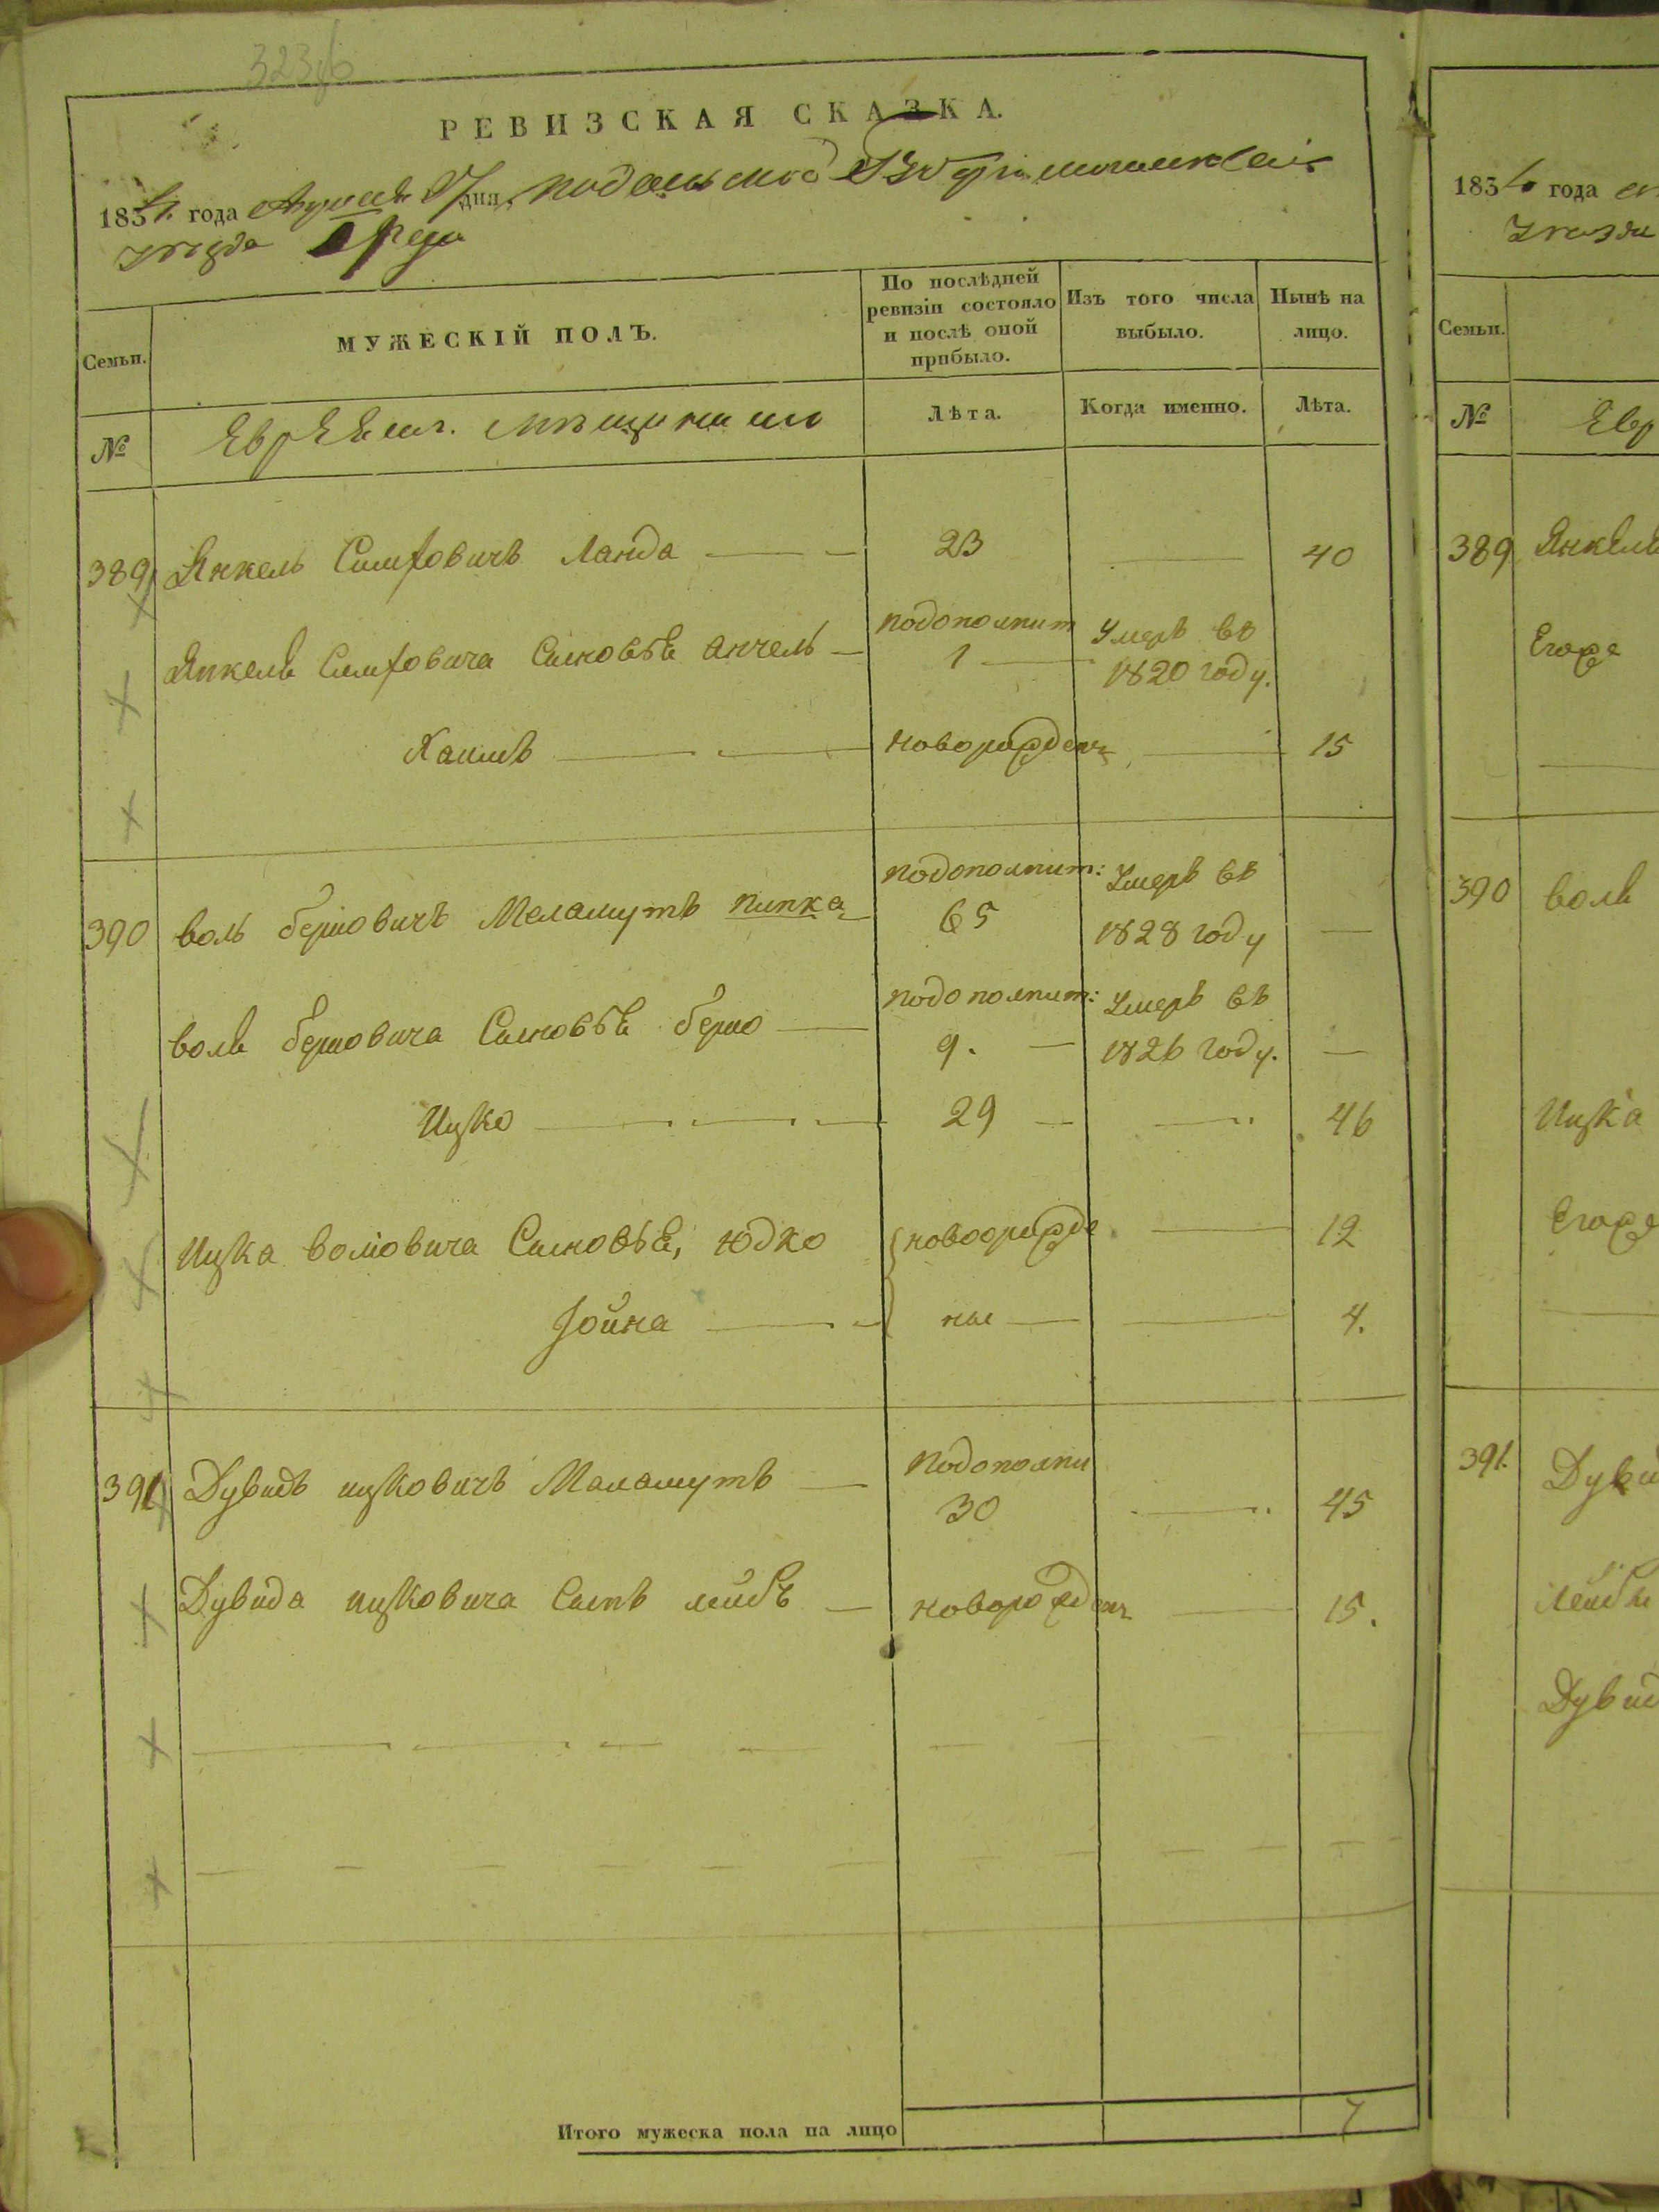 323об
РЕВИЗСКАЯ СКАЗКА.
1834 года дня,
уезда
Семьи.
МУЖЕСКІЙ ПОЛЪ.
По послѣдней ревизіи состояло и послѣ оной прибыло.
Изъ того числа выбыло.
Нынѣ на лицо.
№
Лѣта.
Когда именно.
Лѣта.
389 Янкель Симховичъ Ланда 23 40
Янкеля Симховича Сыновья Анчель подополнит 1 Умеръ въ 1820 году.
Хаимъ новорожден 15
390 воль берковичъ Меламутъ пипка подополнит: 65 Умеръ въ 1828 году
воля берковича Сыновья берко подополнит: 9. Умеръ въ 1826 году.
Ицко 29 46
Ицка волковича Сыновья, юдко новорожде 12
Іойна ные 4.
391 Дувидъ ицковичъ Маламутъ подополни 30 45
Дувида ицковича Сынъ лейбъ новорожден 15.
Итого мужеска пола на лицо 7
1834 года
Семьи.
№ Евр
389 Янкеля
Егоже
390 воля
Ицка
Егоже
391. Дуви
Лейбы
Дувид